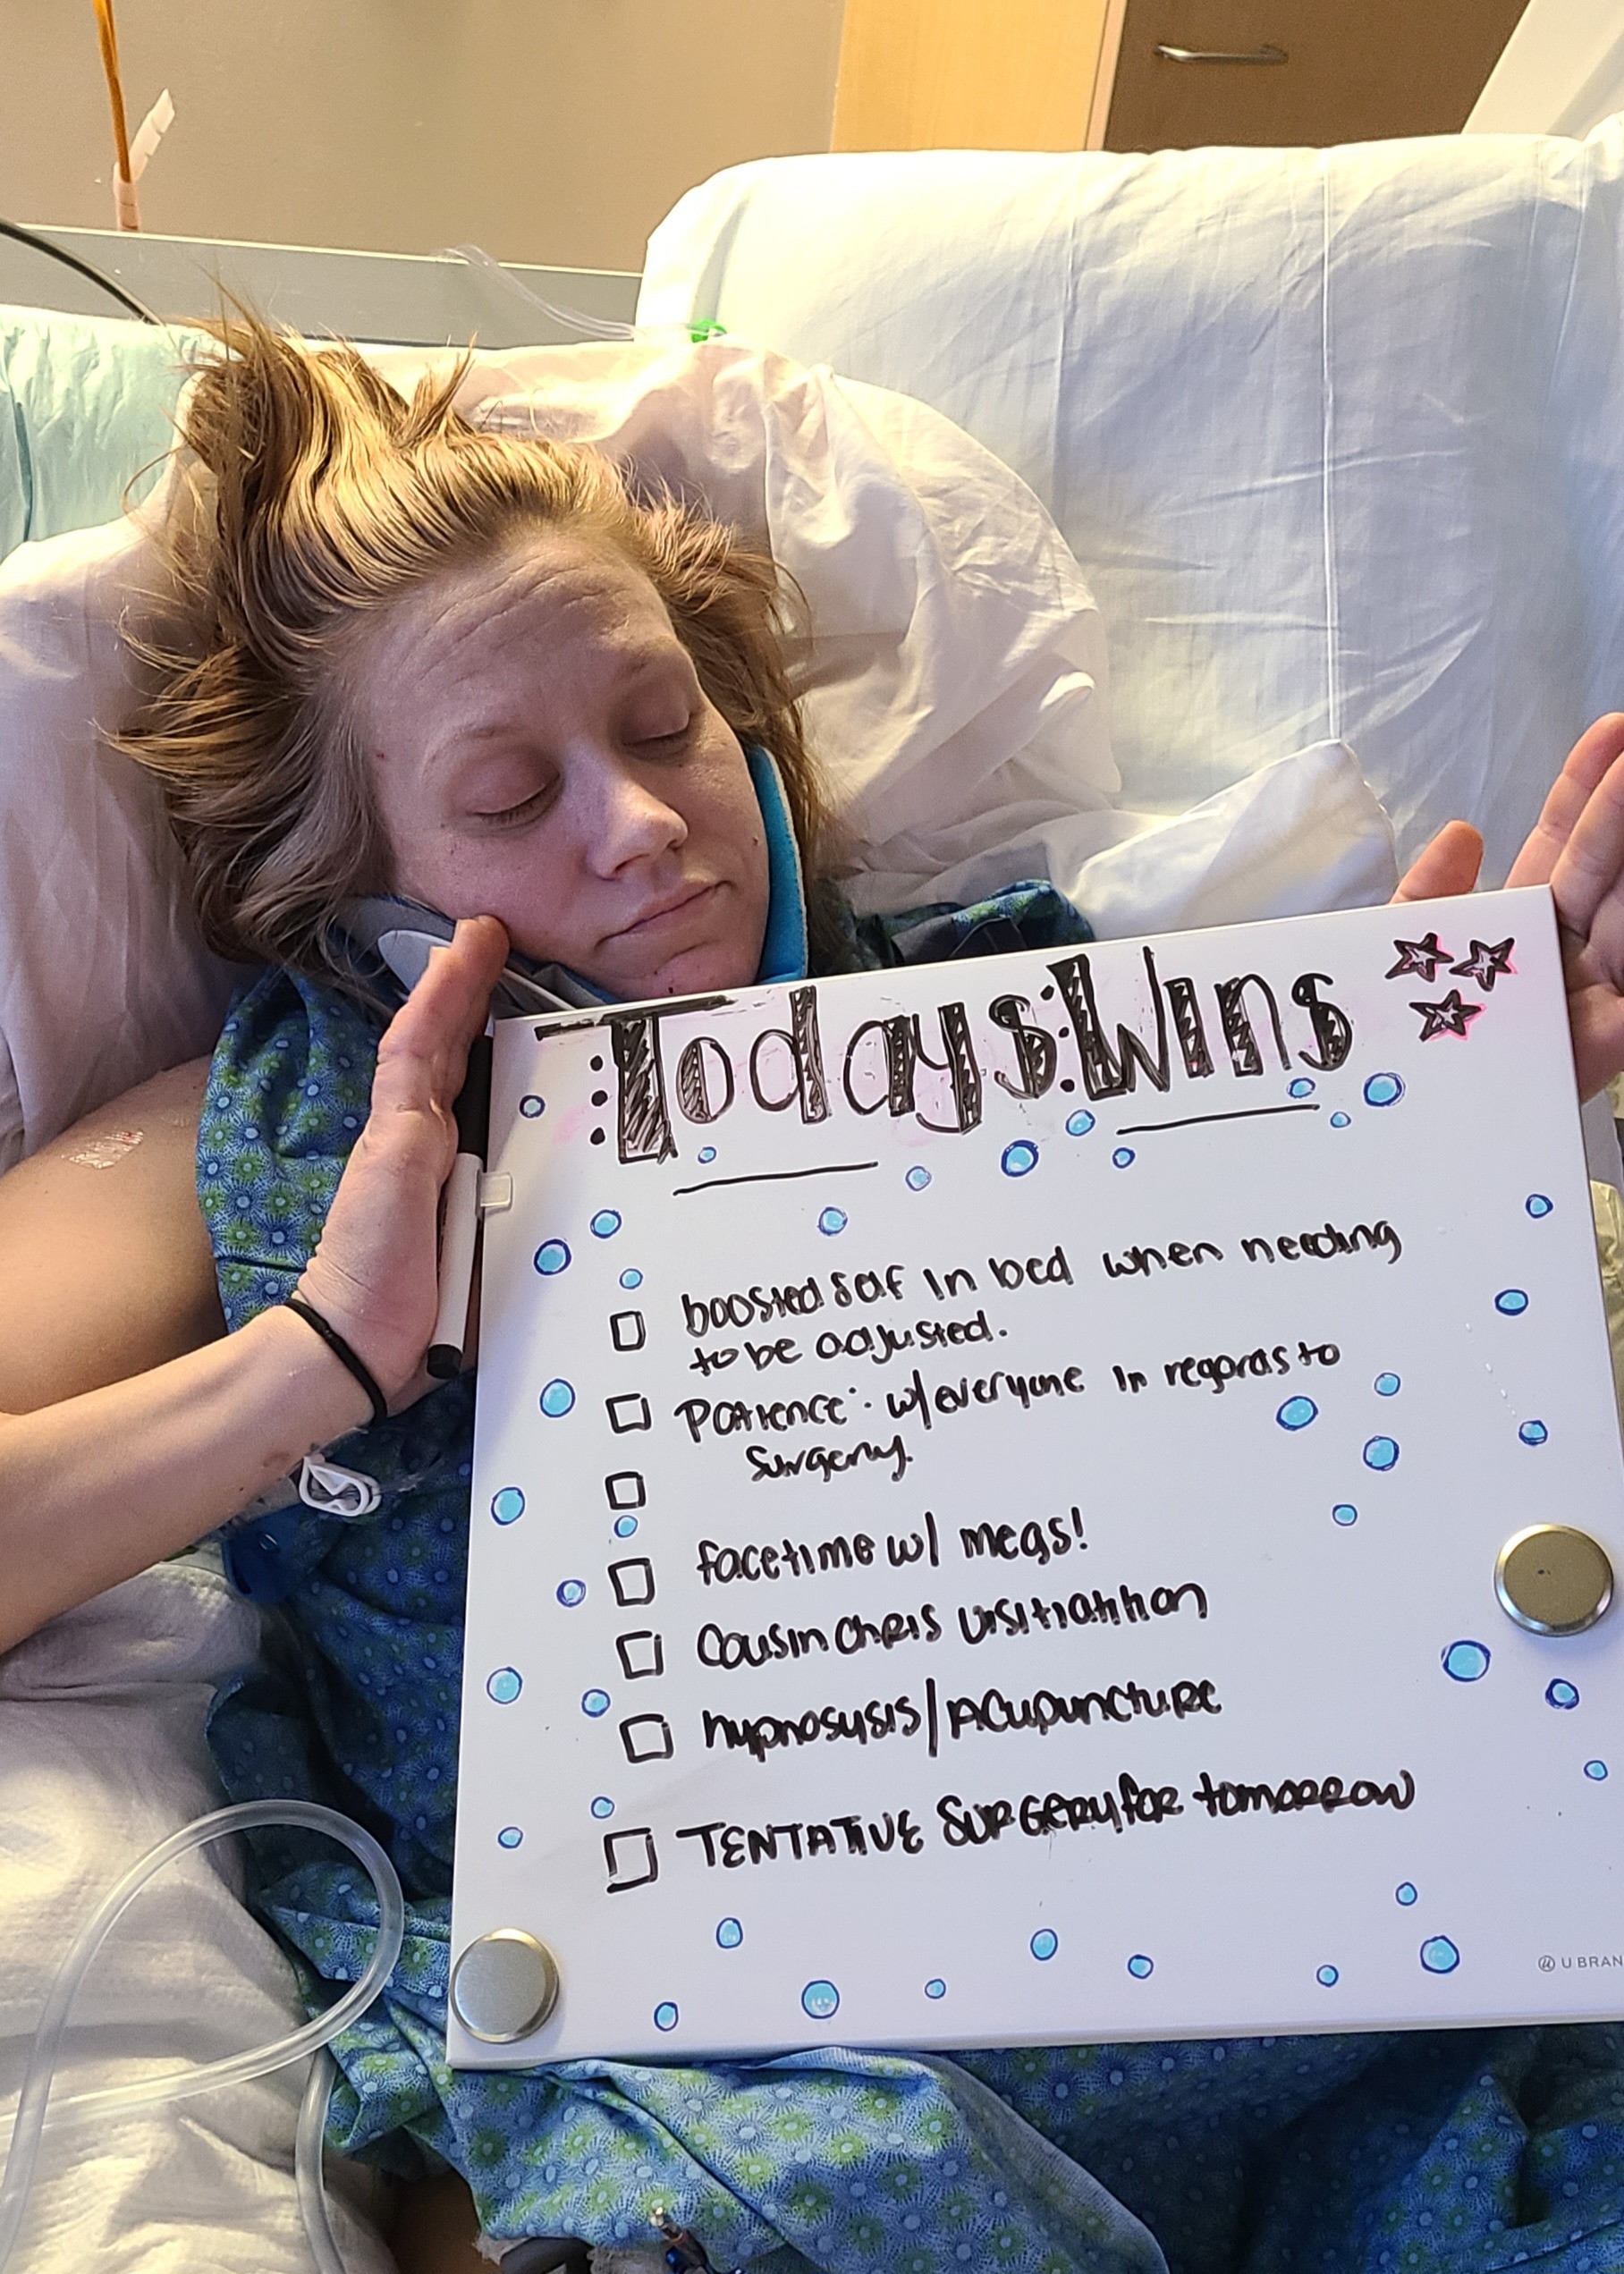 Todays Wins
boosted self in bed when needing
to be adjusted.
Patience: w/everyone in regards to
Surgery.
facetime w/ megs!
Cousin Chris visitiatition
hypnosysis/Acupuncture
TENTATIVE SURGERY for tomorrow
U BRAN